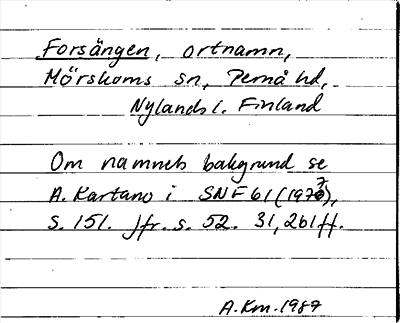 Forsängen, ortnamn,
Mörskoms sn, Pernå hd,
Nylands l. Finland
Om namnets bakgrund se
A. Kartano i SNF 61 (1973),
s. 151. Jfr. s. 52. 31, 261 ff.
A.Km. 1987